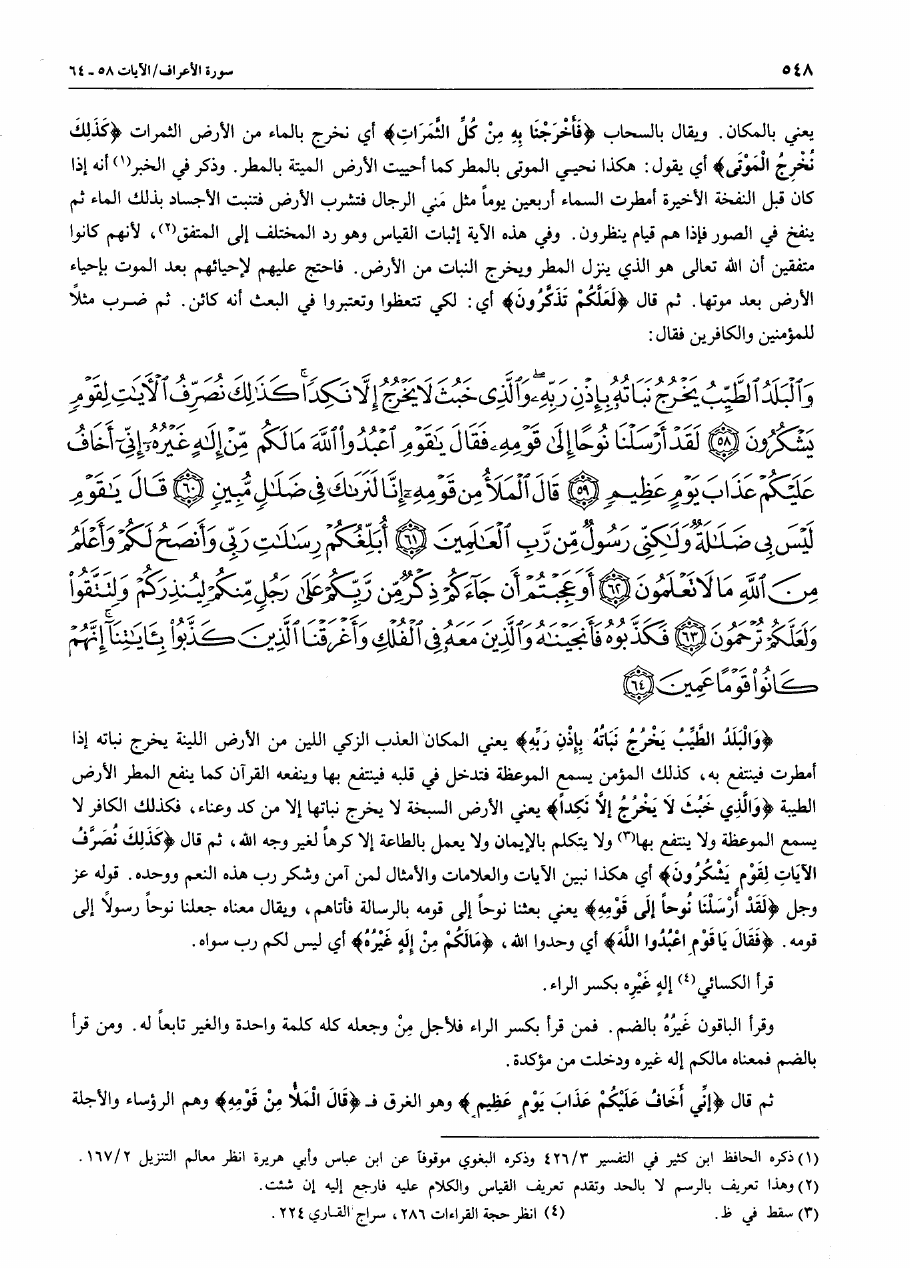 ٥٤٨
سورة الأعراف/الآيات ٥٨ ـ ٦٤
يعني بالمكان. ويقال بالسحاب ﴿فَأَخْرَجْنَا بِهِ مِنْ كُلِّ الثَّمَرَاتِ﴾ أي نخرج بالماء من الأرض الثمرات ﴿كَذَلِكَ
نُخْرِجُ الْمَوْتَى﴾ أي يقول: هكذا نحيـي الموتى بالمطر كما أحييت الأرض الميتة بالمطر. وذكر في الخبر(١) أنه إذا
كان قبل النفخة الأخيرة أمطرت السماء أربعين يوماً مثل مَني الرجال فتشرب الأرض فتنبت الأجساد بذلك الماء ثم
ينفخ في الصور فإذا هم قيام ينظرون. وفي هذه الآية إثبات القياس وهو رد المختلف إلى المتفق(٢)، لأنهم كانوا
متفقين أن الله تعالى هو الذي ينزل المطر ويخرج النبات من الأرض. فاحتج عليهم لإحيائهم بعد الموت بإحياء
الأرض بعد موتها. ثم قال ﴿لَعَلَّكُمْ تَذَكَّرُونَ﴾ أي: لكي تتعظوا وتعتبروا في البعث أنه كائن. ثم ضرب مثلاً
للمؤمنين والكافرين فقال:
وَٱلْبَلَدُ ٱلطَّيِّبُ يَخْرُجُ نَبَاتُهُۥ بِإِذْنِ رَبِّهِۦ ۖ وَٱلَّذِى خَبُثَ لَا يَخْرُجُ إِلَّا نَكِدًا ۚ كَذَٰلِكَ نُصَرِّفُ ٱلْأَيَٰتِ لِقَوْمٍ
يَشْكُرُونَ ٥٨ لَقَدْ أَرْسَلْنَا نُوحًا إِلَىٰ قَوْمِهِۦ فَقَالَ يَٰقَوْمِ ٱعْبُدُوا۟ ٱللَّهَ مَا لَكُم مِّنْ إِلَٰهٍ غَيْرُهُۥٓ إِنِّىٓ أَخَافُ
عَلَيْكُمْ عَذَابَ يَوْمٍ عَظِيمٍ ٥٩ قَالَ ٱلْمَلَأُ مِن قَوْمِهِۦٓ إِنَّا لَنَرَىٰكَ فِى ضَلَٰلٍ مُّبِينٍ ٦٠ قَالَ يَٰقَوْمِ
لَيْسَ بِى ضَلَٰلَةٌ وَلَٰكِنِّى رَسُولٌ مِّن رَّبِّ ٱلْعَٰلَمِينَ ٦١ أُبَلِّغُكُمْ رِسَٰلَٰتِ رَبِّى وَأَنصَحُ لَكُمْ وَأَعْلَمُ
مِنَ ٱللَّهِ مَا لَا تَعْلَمُونَ ٦٢ أَوَعَجِبْتُمْ أَن جَآءَكُمْ ذِكْرٌ مِّن رَّبِّكُمْ عَلَىٰ رَجُلٍ مِّنكُمْ لِيُنذِرَكُمْ وَلِتَتَّقُوا۟
وَلَعَلَّكُمْ تُرْحَمُونَ ٦٣ فَكَذَّبُوهُ فَأَنجَيْنَٰهُ وَٱلَّذِينَ مَعَهُۥ فِى ٱلْفُلْكِ وَأَغْرَقْنَا ٱلَّذِينَ كَذَّبُوا۟ بِـَٔايَٰتِنَآ ۚ إِنَّهُمْ
كَانُوا۟ قَوْمًا عَمِينَ ٦٤
﴿وَالْبَلَدُ الطَّيِّبُ يَخْرُجُ نَبَاتُهُ بِإِذْنِ رَبِّهِ﴾ يعني المكان العذب الزكي اللين من الأرض اللينة يخرج نباته إذا
أمطرت فينتفع به، كذلك المؤمن يسمع الموعظة فتدخل في قلبه فينتفع بها وينفعه القرآن كما ينفع المطر الأرض
الطيبة ﴿وَالَّذِي خَبُثَ لَا يَخْرُجُ إِلَّا نَكِداً﴾ يعني الأرض السبخة لا يخرج نباتها إلا من كد وعناء، فكذلك الكافر لا
يسمع الموعظة ولا ينتفع بها(٣) ولا يتكلم بالإيمان ولا يعمل بالطاعة إلا كرهاً لغير وجه الله، ثم قال ﴿كَذَلِكَ نُصَرِّفُ
الآيَاتِ لِقَوْمٍ يَشْكُرُونَ﴾ أي هكذا نبين الآيات والعلامات والأمثال لمن آمن وشكر رب هذه النعم ووحده. قوله عز
وجل ﴿لَقَدْ أَرْسَلْنَا نُوحاً إِلَى قَوْمِهِ﴾ يعني بعثنا نوحاً إلى قومه بالرسالة فأتاهم، ويقال معناه جعلنا نوحاً رسولاً إلى
قومه. ﴿فَقَالَ يَا قَوْمِ اعْبُدُوا اللَّهَ﴾ أي وحدوا الله، ﴿مَالَكُمْ مِنْ إِلَهٍ غَيْرُهُ﴾ أي ليس لكم رب سواه.
قرأ الكسائي(٤) إلهٍ غَيْرِه بكسر الراء.
وقرأ الباقون غَيرُهُ بالضم. فمن قرأ بكسر الراء فلأجل مِنْ وجعله كله كلمة واحدة والغير تابعاً له. ومن قرأ
بالضم فمعناه مالكم إله غيره ودخلت من مؤكدة.
ثم قال ﴿إِنِّي أَخَافُ عَلَيْكُمْ عَذَابَ يَوْمٍ عَظِيمٍ﴾ وهو الغرق فـ ﴿قَالَ الْمَلأُ مِنْ قَوْمِهِ﴾ وهم الرؤساء والأجلة
(١) ذكره الحافظ ابن كثير في التفسير ٤٢٦/٣ وذكره البغوي موقوفاً عن ابن عباس وأبي هريرة انظر معالم التنزيل ١٦٧/٢.
(٢) وهذا تعريف بالرسم لا بالحد وتقدم تعريف القياس والكلام عليه فارجع إليه إن شئت.
(٣) سقط في ظ. (٤) انظر حجة القراءات ٢٨٦، سراج القاري ٢٢٤.